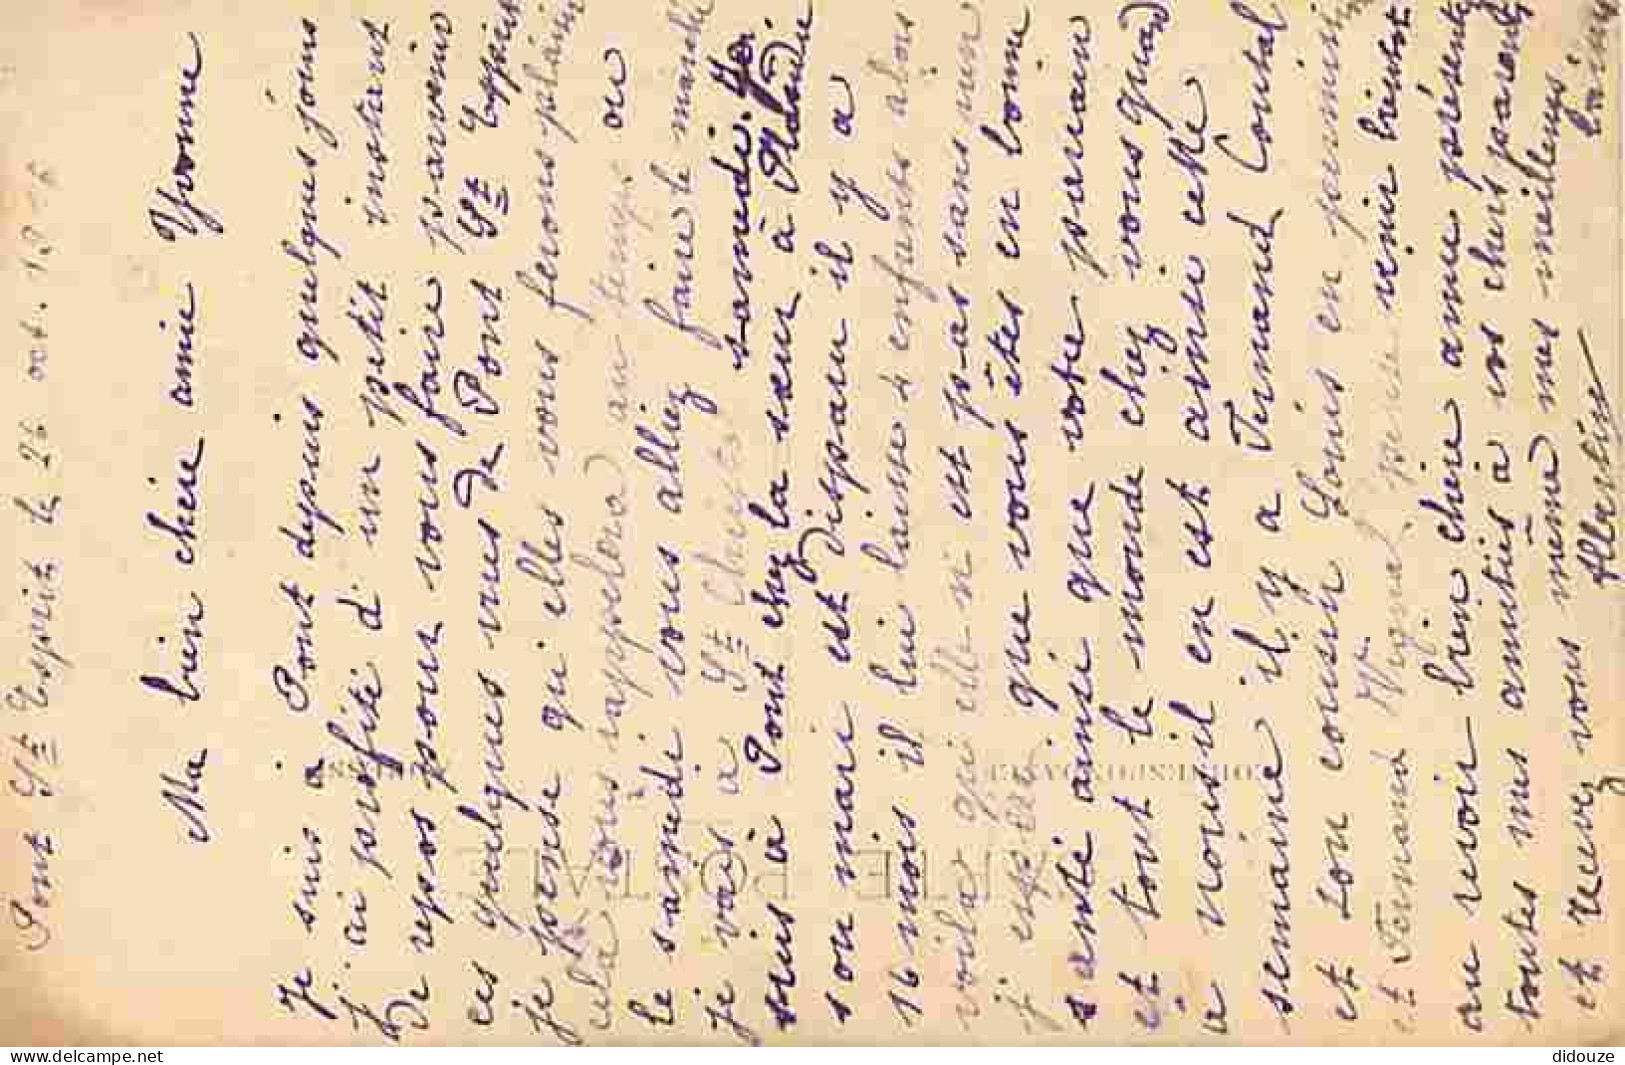 Pont St Esprit le 26 oct. 19
Ma bien chère amie Yvonne
Je suis à Pont depuis quelques jours
j'ai profité d'un petit instant
de repos pour vous faire parvenir
ces quelques vues de Pont St Esprit
je pense qu'elles vous ferons plaisir
cela vous rappelera au temps ou
le samedi vous alliez faire le marché
je vais a St samedi. Je
suis à Pont chez la sœur à
son mari est disparu il y a
16 mois il lui laisse 4 enfants alors
voila qui elle n'est pas sans rien
j'espère que vous êtes en bonne
santé ainsi que votre maman
et tout le monde chez vous quand
à nous il en est ainsi cette
semaine il y a Fernand Coutal
et son cousin Louis en permission
et Fernand va venir bientôt
au revoir bien chère amie présentez
toutes mes amitiés à vos chers parents
et recevez vous même mes meilleurs
baisers
CARTE POSTALE
CORRESPONDANCE
delcampe.net
didouze